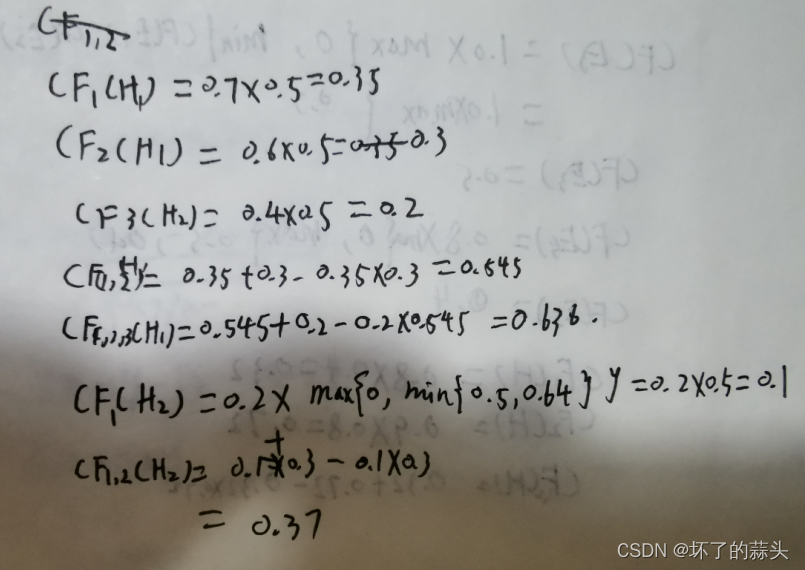 CF1,2
CF1(H1) = 0.7×0.5=0.35
CF2(H1) = 0.6×0.5=0.35 0.3
CF3(H2)= 0.4×0.5 =0.2
= 0.35+0.3-0.35×0.3 =0.545
CF1,2,3(H1)=0.545+0.2-0.2×0.545 =0.636.
CF1(H2) =0.2× max{0, min{0.5,0.64}} =0.2×0.5=0.1
CF1,2(H2)= 0.1+0.3-0.1×0.3
= 0.37
CSDN @坏了的蒜头